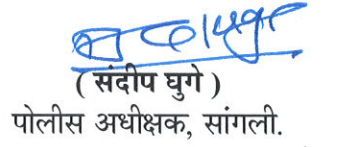 ( संदीप घुगे )
पोलीस अधीक्षक, सांगली.